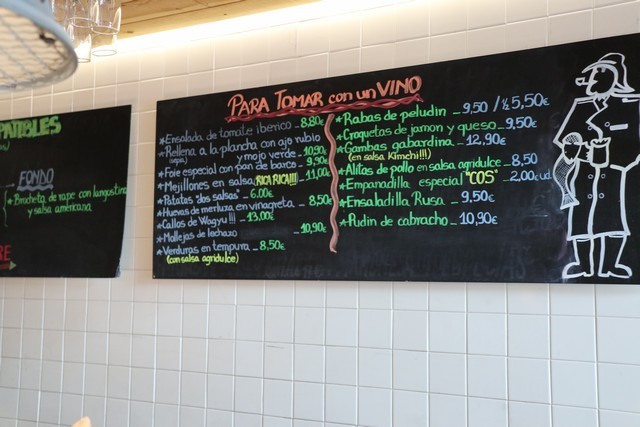 PATIBLES
FONDO
* Brocheta de rape con langostino
y salsa americana
RE
PARA TOMAR con un VINO
* Ensalada de tomate iberico - 8.80€
* Rellena a la plancha con ajo rubio
(sepia) y mojo verde - 10,90€
* Foie especial con pan de barca - 9,90€
* Mejillones en salsa ¡RICA RICA!!! - 11,00€
* Patatas "dos salsas - 6,00€
* Huevas de merluza en vinagreta - 8,50€
* Callos de Wagyu !!! - 13,00€
* Mollejas de lechazo - 10,90€
* Verduras en tempura - 8,50€
(con salsa agridulce)
* Rabas de peludin - 9,50 / ½ 5,50€
* Croquetas de jamon y queso - 9,50€
* Gambas gabardina - 12,90€
(en salsa Kimchi!!!)
* Alitas de pollo en salsa agridulce - 8,50
* Empanadilla especial "COS" - 2,00€ud.
* Ensaladilla Rusa - 9,50€
* Pudin de cabracho - 10,90€